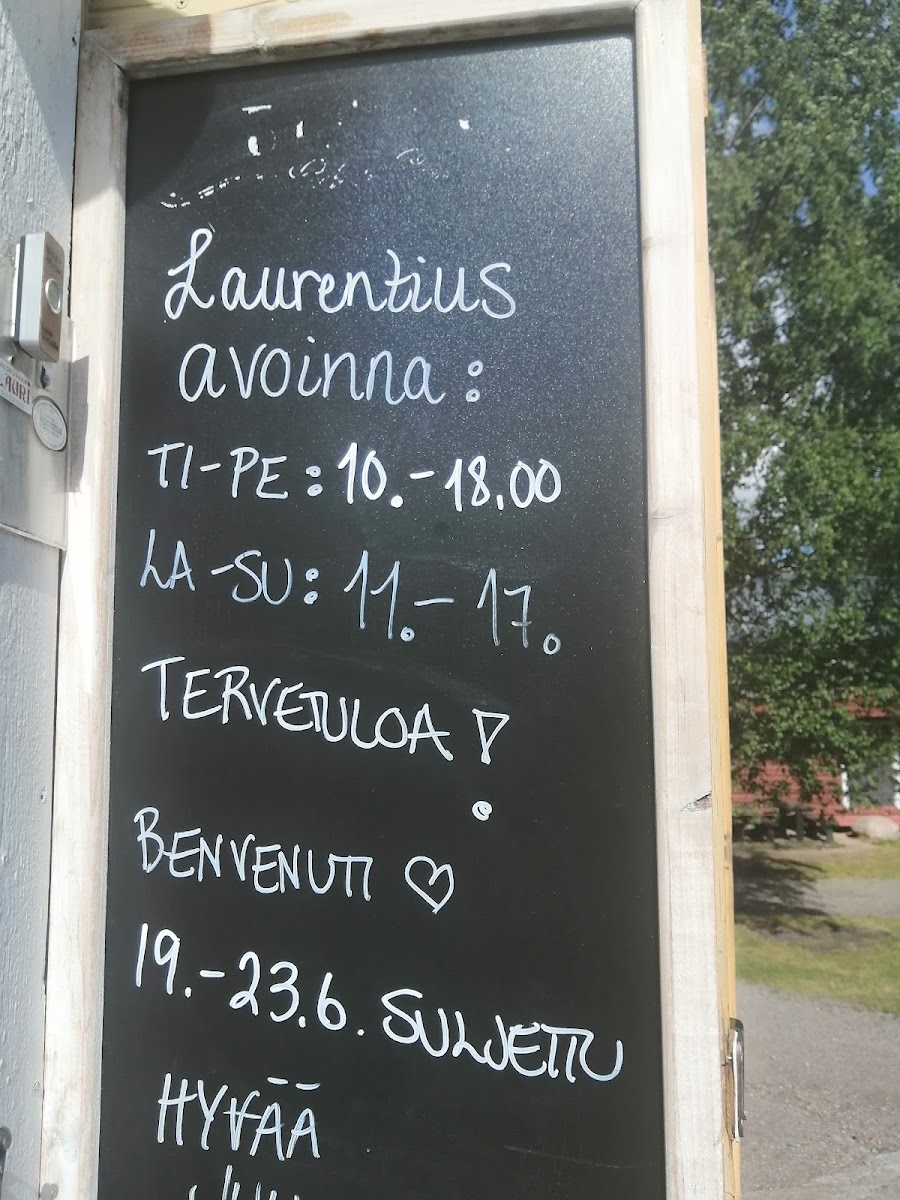 Laurentius
avoinna:
TI-PE: 10.-18.00
LA-SU: 11.-17.
TERVETULOA!
BENVENUTI ♡
19.-23.6. SULJETTU
HYVÄÄ